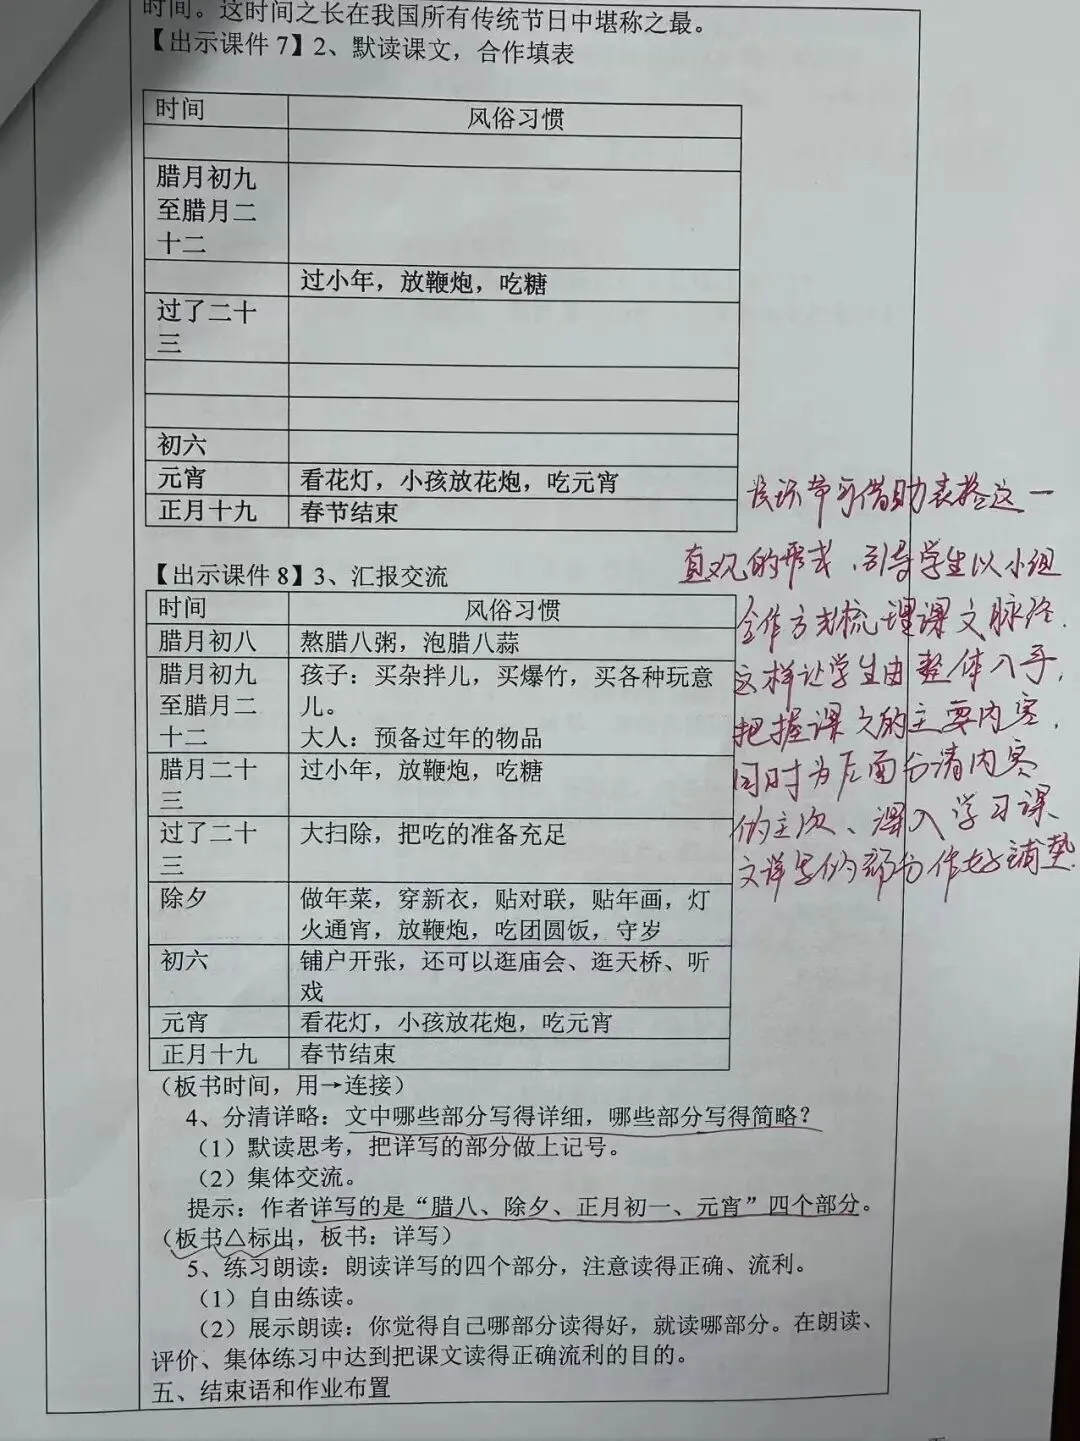 时间。这时间之长在我国所有传统节日中堪称之最。
【出示课件 7】2、默读课文，合作填表
时间 风俗习惯
腊月初九
至腊月二
十二
过小年，放鞭炮，吃糖
过了二十
三
初六
元宵 看花灯，小孩放花炮，吃元宵
正月十九 春节结束
该环节可借助表格这一
直观的形式，引导学生以小组
合作方式梳理课文脉络.
这样让学生由整体入手,
把握课文的主要内容,
同时为后面分清内容
的主次、深入学习课
文详写的部分作好铺垫.
【出示课件 8】3、汇报交流
时间 风俗习惯
腊月初八 熬腊八粥，泡腊八蒜
腊月初九 孩子：买杂拌儿，买爆竹，买各种玩意
至腊月二 儿。
十二 大人：预备过年的物品
腊月二十 过小年，放鞭炮，吃糖
三
过了二十 大扫除，把吃的准备充足
三
除夕 做年菜，穿新衣，贴对联，贴年画，灯
火通宵，放鞭炮，吃团圆饭，守岁
初六 铺户开张，还可以逛庙会、逛天桥、听
戏
元宵 看花灯，小孩放花炮，吃元宵
正月十九 春节结束
（板书时间，用→连接）
4、分清详略：文中哪些部分写得详细，哪些部分写得简略？
（1）默读思考，把详写的部分做上记号。
（2）集体交流。
提示：作者详写的是“腊八、除夕、正月初一、元宵”四个部分。
（板书△标出，板书：详写）
5、练习朗读：朗读详写的四个部分，注意读得正确、流利。
（1）自由练读。
（2）展示朗读：你觉得自己哪部分读得好，就读哪部分。在朗读、
评价、集体练习中达到把课文读得正确流利的目的。
五、结束语和作业布置